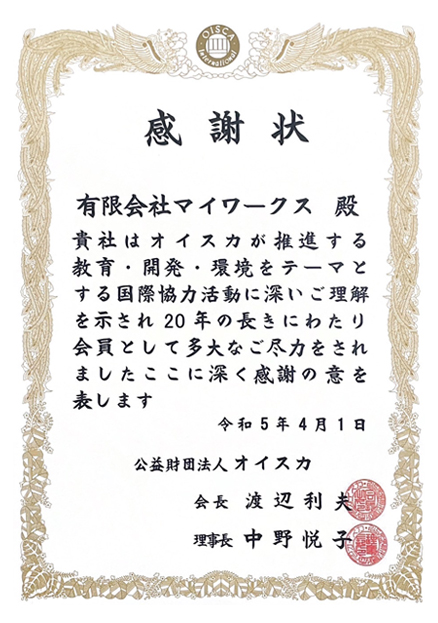 OISCA
International
感謝状
有限会社マイワークス 殿
貴社はオイスカが推進する
教育・開発・環境をテーマと
する国際協力活動に深いご理解
を示され20年の長きにわたり
会員として多大なご尽力をされ
ましたここに深く感謝の意を
表します
令和5年4月1日
公益財団法人オイスカ
会長 渡辺利夫
理事長 中野悦子